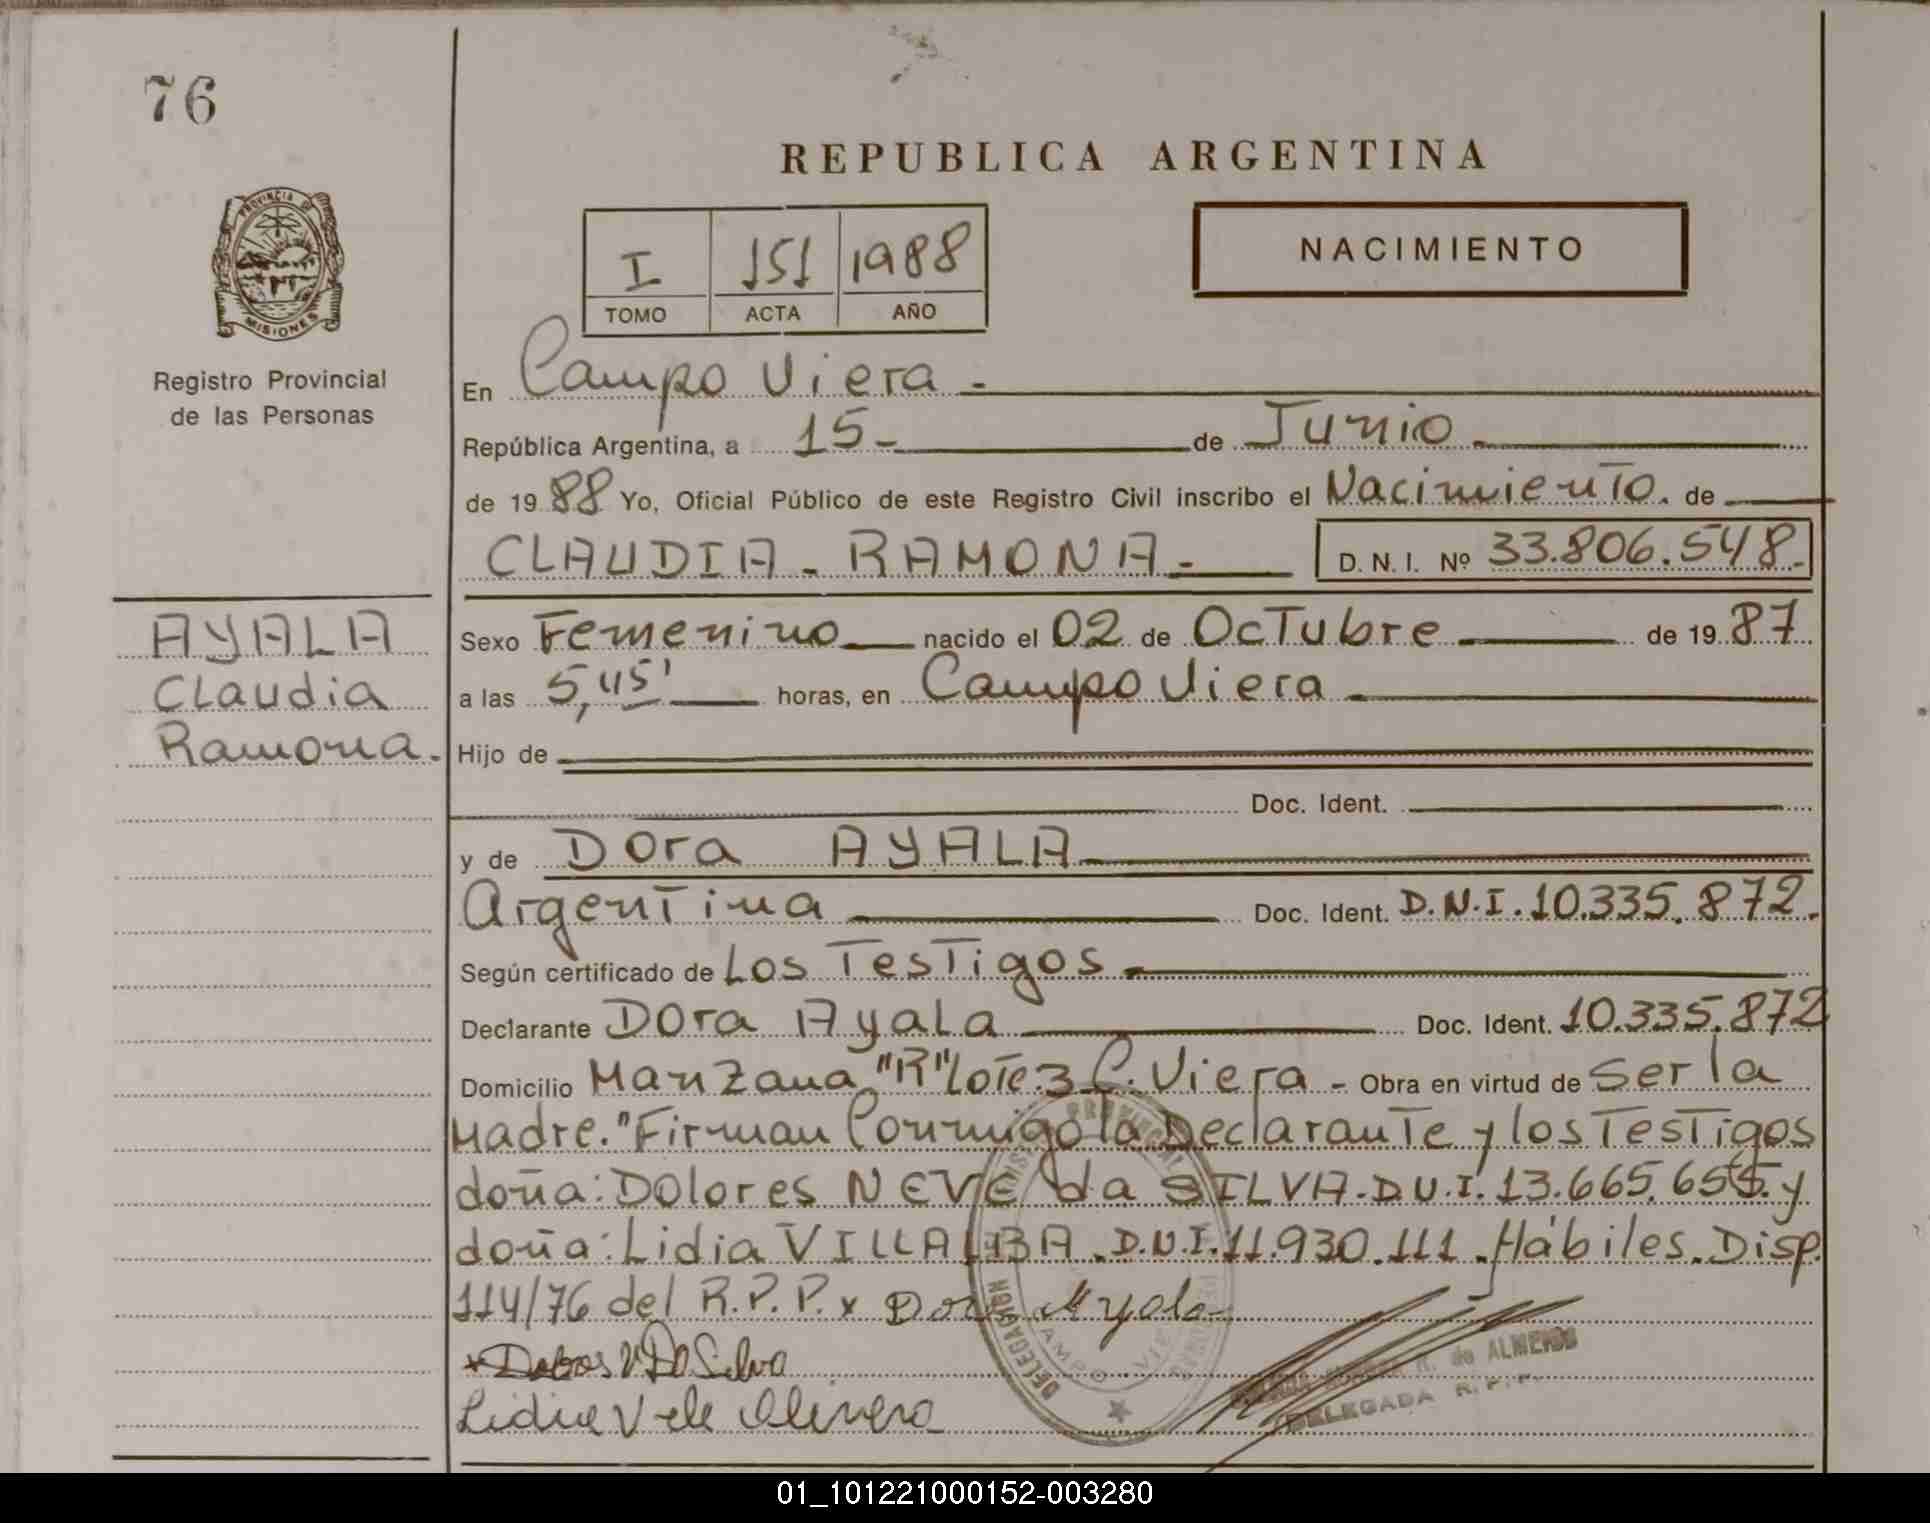 76
REPUBLICA ARGENTINA
PROVINCIA DE
MISIONES
Registro Provincial
de las Personas
I 151 1988
TOMO ACTA AÑO
NACIMIENTO
En Campo Viera -
República Argentina, a 15- de Junio -
de 19 88 Yo, Oficial Público de este Registro Civil inscribo el Nacimiento. de
CLAUDIA - RAMONA - D. N. I. Nº 33.806.548.-
AYALA
Claudia
Ramona.
Sexo Femenino nacido el 02 de Octubre de 19 87
a las 5,45' horas, en Campo Viera -
Hijo de
Doc. Ident.
y de Dora AYALA
Argentina Doc. Ident. D.N.I. 10.335.872.
Según certificado de Los Testigos -
Declarante Dora Ayala Doc. Ident. 10.335.872
Domicilio Manzana "R" Lote 3 C. Viera - Obra en virtud de Ser la
Madre." Firman Conmigo la Declarante y los Testigos
doña: Dolores NEVE da SILVA. D.N.I. 13.665.655. y
doña: Lidia VILLALBA. D.N.I. 11.930.111. Hábiles. Disp.
114/76 del R.P.P. x Dora Ayala
Lidia V de Olivera
PROVINCIAL
DELEGACION
CAMPO VIERA
de ALMEIDA
DELEGADA R.P.P.
01_101221000152-003280